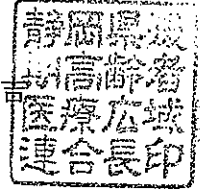 静岡県後
期高齢者
医療広域
連合長印